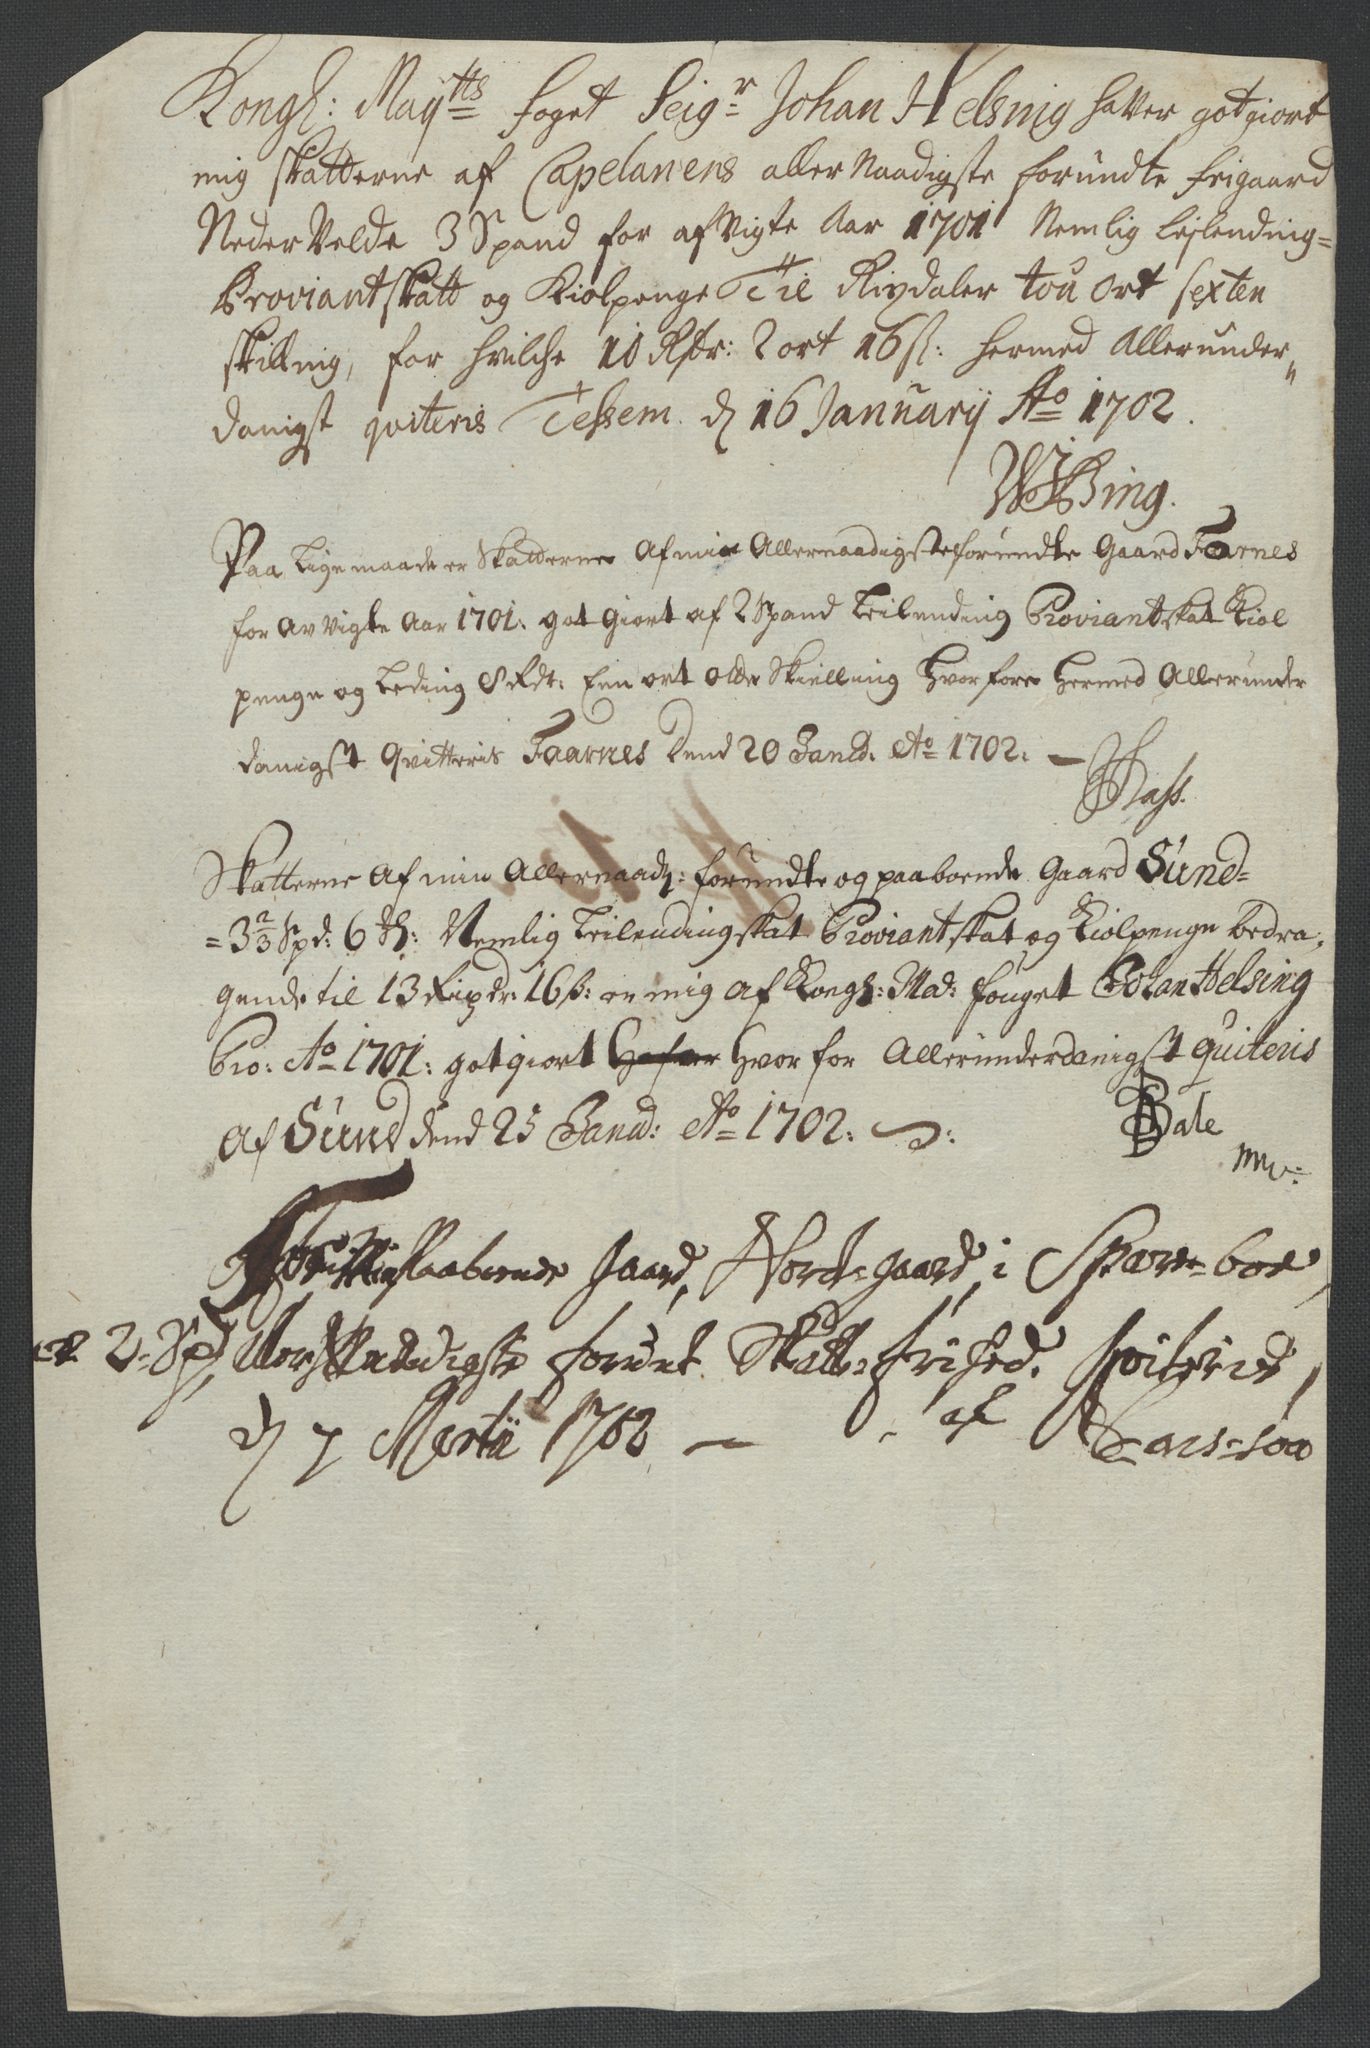 Kongl: Maytts foget Seigr Johan Helsing haver gotgiort
mig skatterne af Capelanens aller Naadigste forundte frigaard
Neder Velde 3 Spand for afvigte Aar 1701 Nemlig Leilending=
Proviantskatt og Kiolpenge Tie Rixdaler tou ort sexten
skilling, for hvilche 10 Rdr: 2 ort 16 s: hermed Allerunder„
danigst qviteris Tessem d 16 Januarij Ao 1702.
Bing.
Paa Lige maade er Skatterne Af min Allernaadigste forundte Gaard Faarnes
for Av vigte Aar 1701. got Giort af 2 Spand Leilending Proviantskat Kiol
penge og Leding 8 Rdr: Een ort otte Skielling Hvorfore Hermed Allerunder
danigst Qvitteris Faarnes Dend 20 Janu: Ao 1702. —
Hass.
Skatterne Af min Allernaad: forundte og paaboende Gaard Sund=
=3 2/3 Spd: 6 : Nemlig Leilendingskat Proviantskat og Kiolpenge bedra„
gende til 13 Rixdr 16 s: er mig af Kongl: Mad: fouget Johan Helsing
Pro: Ao 1701: gotgiort Hvor for Allerunderdanigst quiteris
Af Sund dend 25 Janu: Ao 1702.
Bale
mpp:
Paaboende Gaard, Nord=gaard i Sparboe,
2 Spd, forundt Skatt=frihed. qviterit,
d 7 Martii 1702 — af